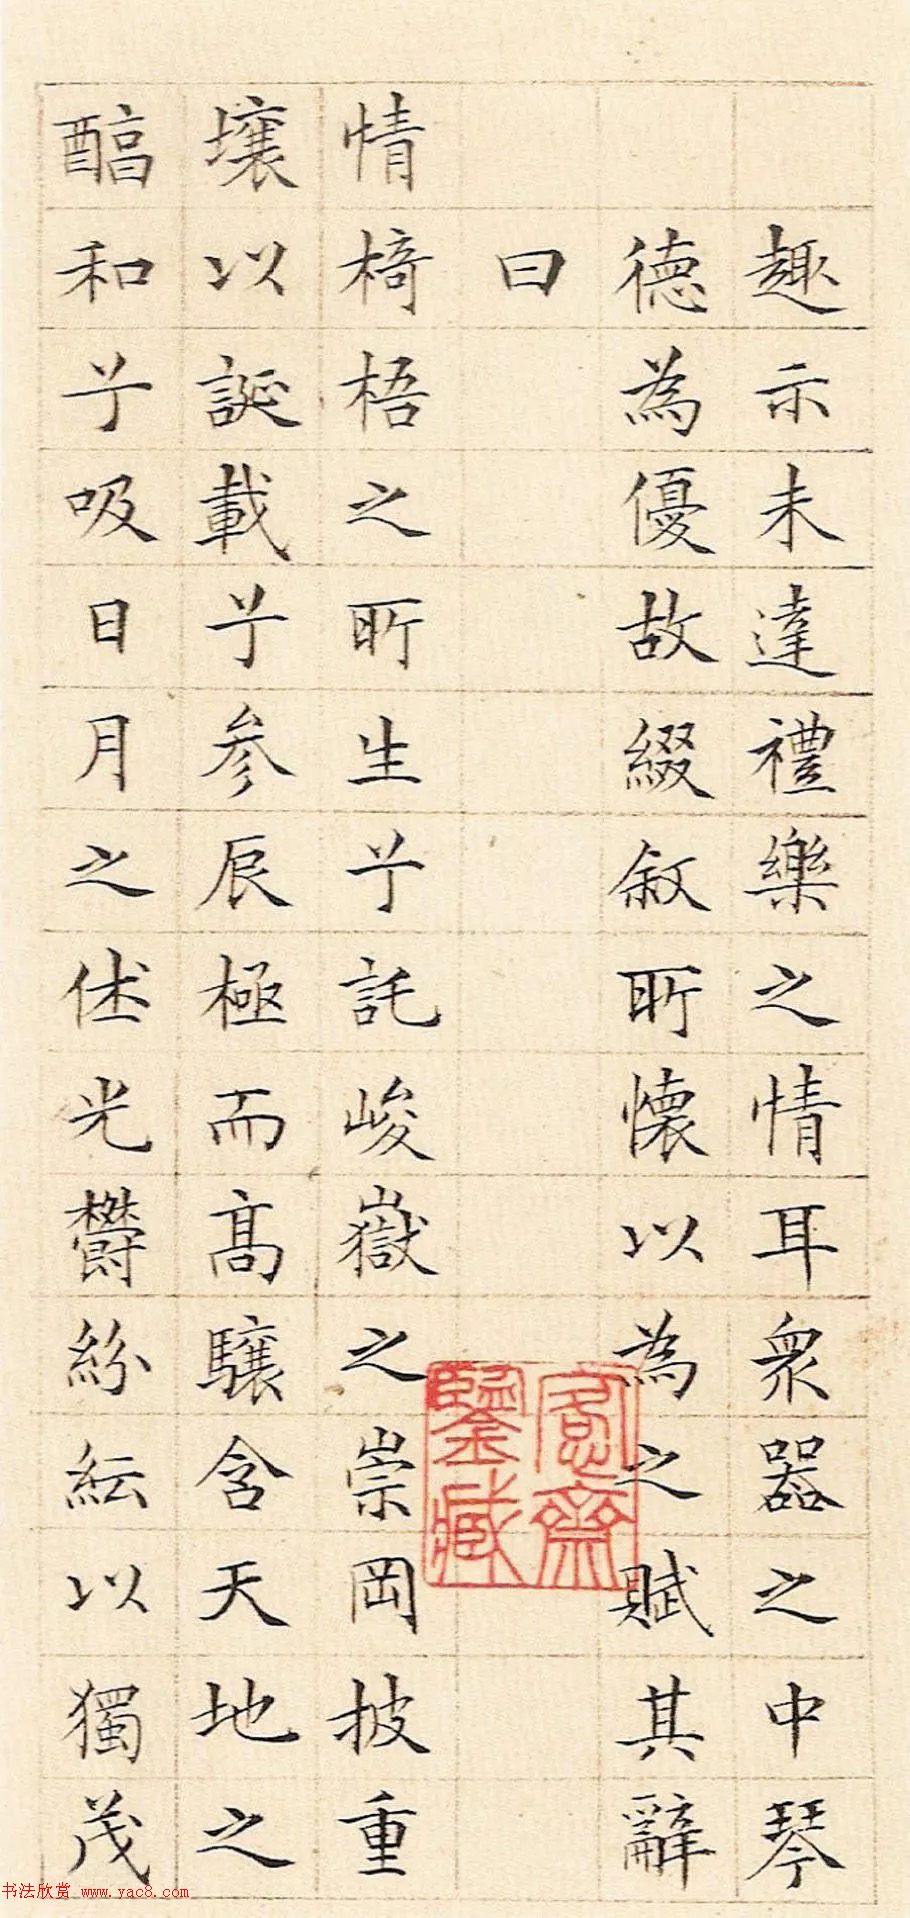 趣示未達禮樂之情耳衆器之中琴
德為優故綴敘所懷以為之賦其辭
曰
情椅梧之所生兮託峻嶽之崇岡披重
壤以誕載兮參辰極而高驤含天地之
醕和兮吸日月之休光鬱紛紜以獨茂
愙齋
鑒藏
书法欣赏 www.yac8.com